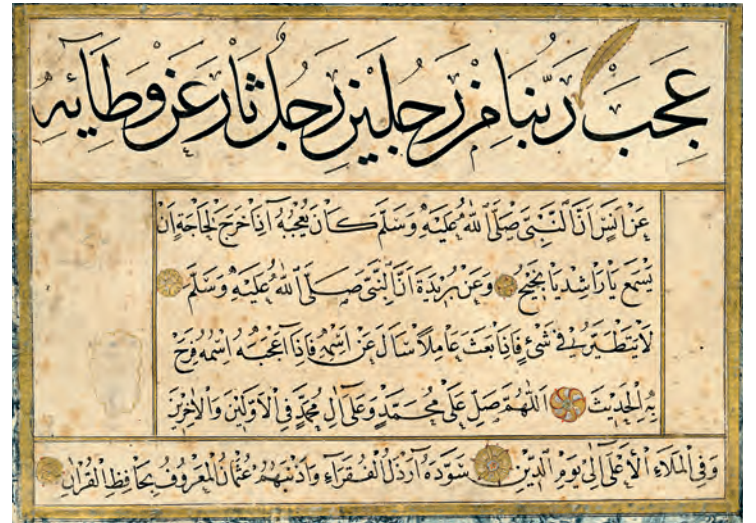 عَجِبَ رَبُّنَا مِنْ رَجُلَيْنِ رَجُلٌ ثَارَ عَنْ وِطَائِهِ
عَنْ اَنَسٍ اَنَّ النَّبِىَّ صَلَّى اللّٰهُ عَلَيْهِ وَسَلَّمَ كَانَ يُعْجِبُهُ اِذَا خَرَجَ لِحَاجَةٍ اَنْ
يَسْمَعَ يَا رَاشِدُ يَا نَجِيحُ وَعَنْ بُرَيْدَةَ اَنَّ النَّبِىَّ صَلَّى اللّٰهُ عَلَيْهِ وَسَلَّمَ
لَا يَتَطَيَّرُ فِى شَىْءٍ فَاِذَا بَعَثَ عَامِلًا سَاَلَ عَنْ اِسْمِهِ فَاِذَا اَعْجَبَهُ اسْمُهُ فَرِحَ
بِهِ الْحَدِيثَ اَللّٰهُمَّ صَلِّ عَلٰى مُحَمَّدٍ وَعَلٰى اٰلِ مُحَمَّدٍ فِى الْاَوَّلِينَ وَالْاٰخِرِينَ
وَفِى الْمَلَاءِ الْاَعْلٰى اِلٰى يَوْمِ الدِّينِ سَوَّدَهُ اَرْذَلُ الْفُقَرَاءِ وَاَذْنَبُهُمْ عُثْمَانُ الْمَعْرُوفُ بِحَافِظِ الْقُرْاٰنِ